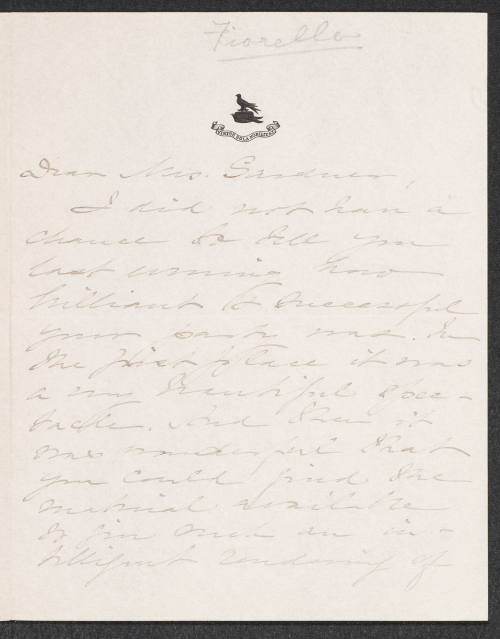 Fiorello
VIRTUS SOLA NOBILITAT
Dear Mrs. Gardner,
I did not have a
chance to tell you
last evening how
brilliant & successful
your party was. In
the first place it was
a very beautiful spec-
tacle. And then it
was wonderful that
you could find the
material available
to give such an in-
telligent rendering of